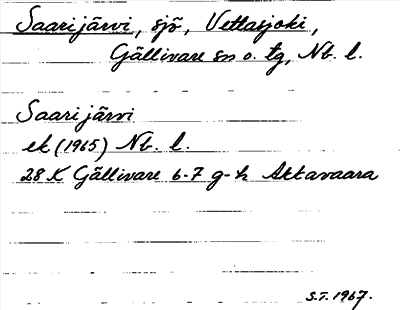 Saarijärvi, sjö, Vettasjoki,
Gällivare sn o. tg, Nb. l.
Saarijärvi
ek (1965) Nb. l.
28 K Gällivare 6-7 g-h Aktavaara
S.T. 1967.